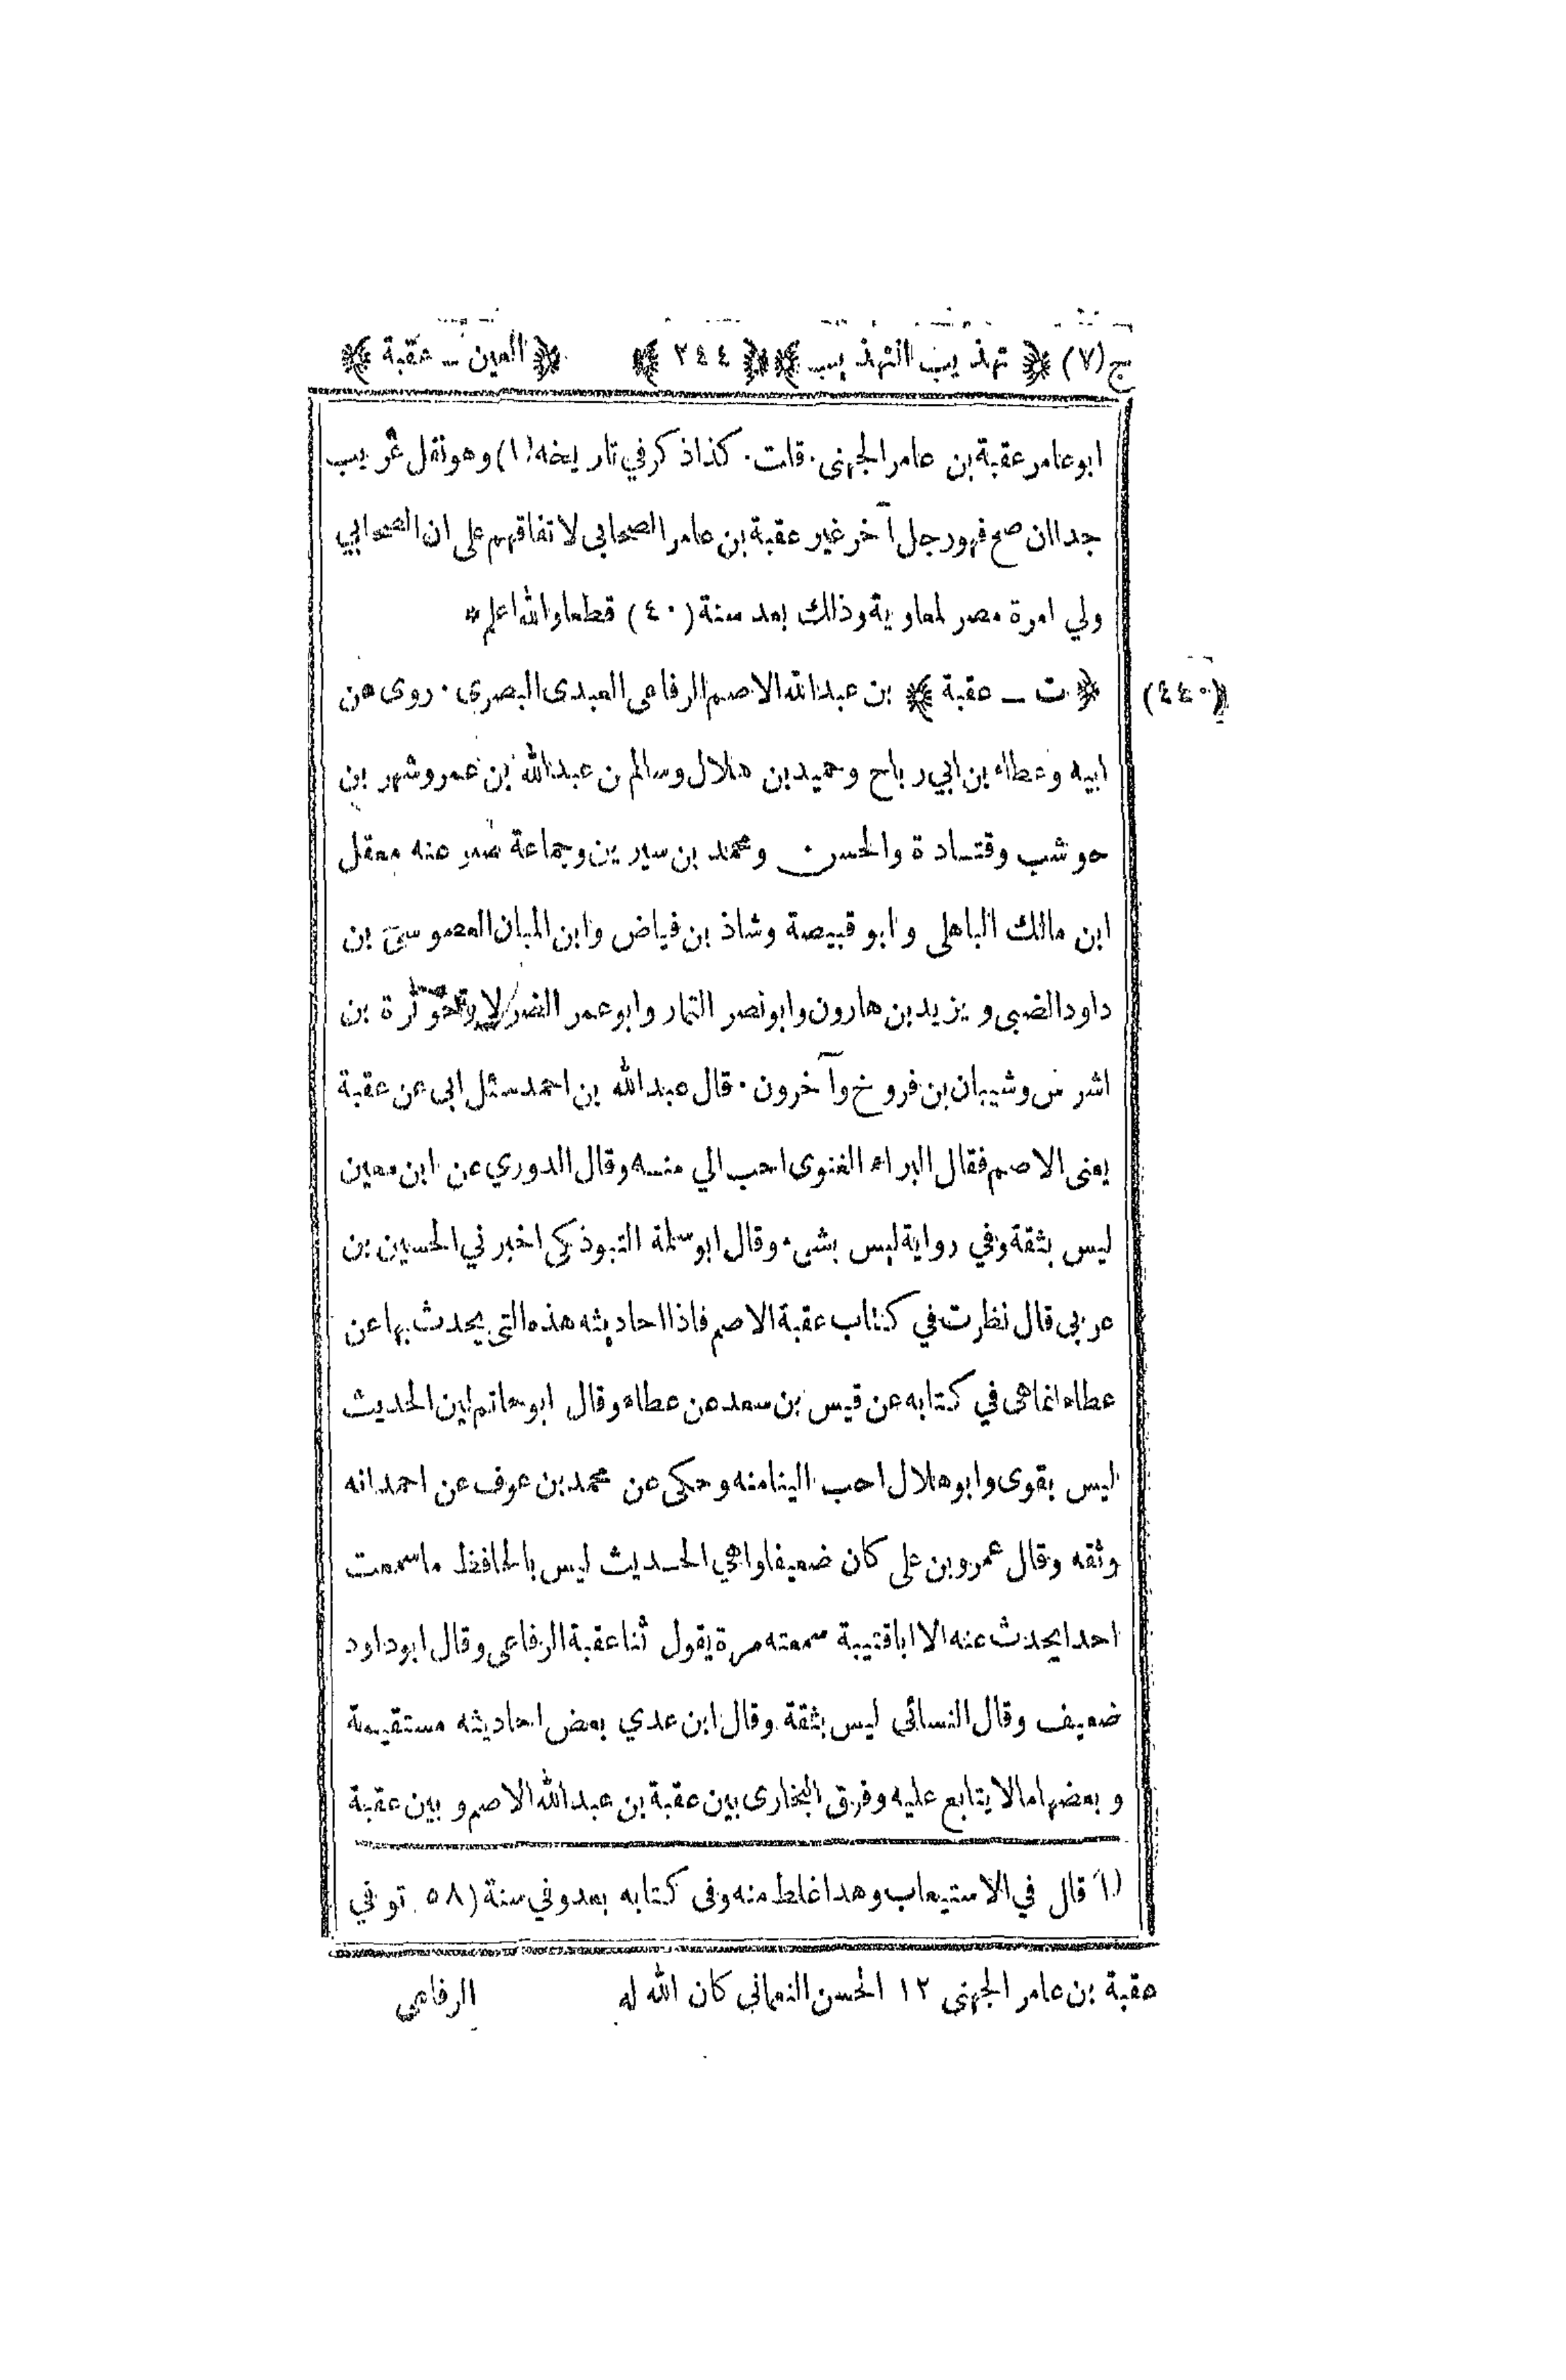 ج (٧) ﴿ تهذيب التهذيب ﴾ ﴿ ٢٤٤ ﴾ ﴿ العين ــ عقبة ﴾
ابو عامر عقبة بن عامر الجهنى . قلت . كذا ذكر في تاريخه (١) وهو نقل غريب
جدا ان صح فهو رجل آخر غير عقبة بن عامر الصحابى لاتفاقهم على ان الصحابي
ولي امرة مصر لمعاوية وذلك بعد سنة (٤٠) قطعا والله اعلم *
(٤٤٠) ﴿ ت ــ عقبة ﴾ بن عبد الله الاصم الرفاعى العبدى البصرى . روى عن
ابيه وعطاء بن ابي رباح وحميد بن هلال وسالم بن عبد الله بن عمر وشهر بن
حوشب وقتادة والحسن ومحمد بن سيرين وجماعة عنه معقل
ابن مالك الباهلى وابو قبيصة وشاذ بن فياض وابن المبارك موسى بن
داود الضبى ويزيد بن هارون وابو نصر التمار وابو عمر الضرير حوثرة بن
اشرس وشيبان بن فروخ وآخرون . قال عبد الله بن احمد سئل ابى عن عقبة
يعنى الاصم فقال البراء الغنوى احب الي منه وقال الدوري عن ابن معين
ليس بثقة وفي رواية ليس بشىء وقال ابو سلمة التبوذكى اخبرني الحسين بن
عربى قال نظرت في كتاب عقبة الاصم فاذا احاديثه هذه التى يحدث بها عن
عطاء انما هى في كتابه عن قيس بن سعد عن عطاء وقال ابو حاتم لين الحديث
ليس بقوى وابو هلال احب الينا منه وحكى عن محمد بن عوف عن احمد انه
وثقه وقال عمرو بن على كان ضعيفا واهي الحديث ليس بالحافظ ما سمعت
احدا يحدث عنه الا ابا قتيبة سمعته مرة يقول ثنا عقبة الرفاعى وقال ابو داود
ضعيف وقال النسائي ليس بثقة وقال ابن عدي بعض احاديثه مستقيمة
وبعضها مما لا يتابع عليه وفرق البخارى بين عقبة بن عبد الله الاصم وبين عقبة
(١) قال في الاستيعاب وهذا غلط منه وفى كتابه بعد وفي سنة (٥٨) توفي
عقبة بن عامر الجهنى ١٢ الحسن النعماني كان الله له
الرفاعى